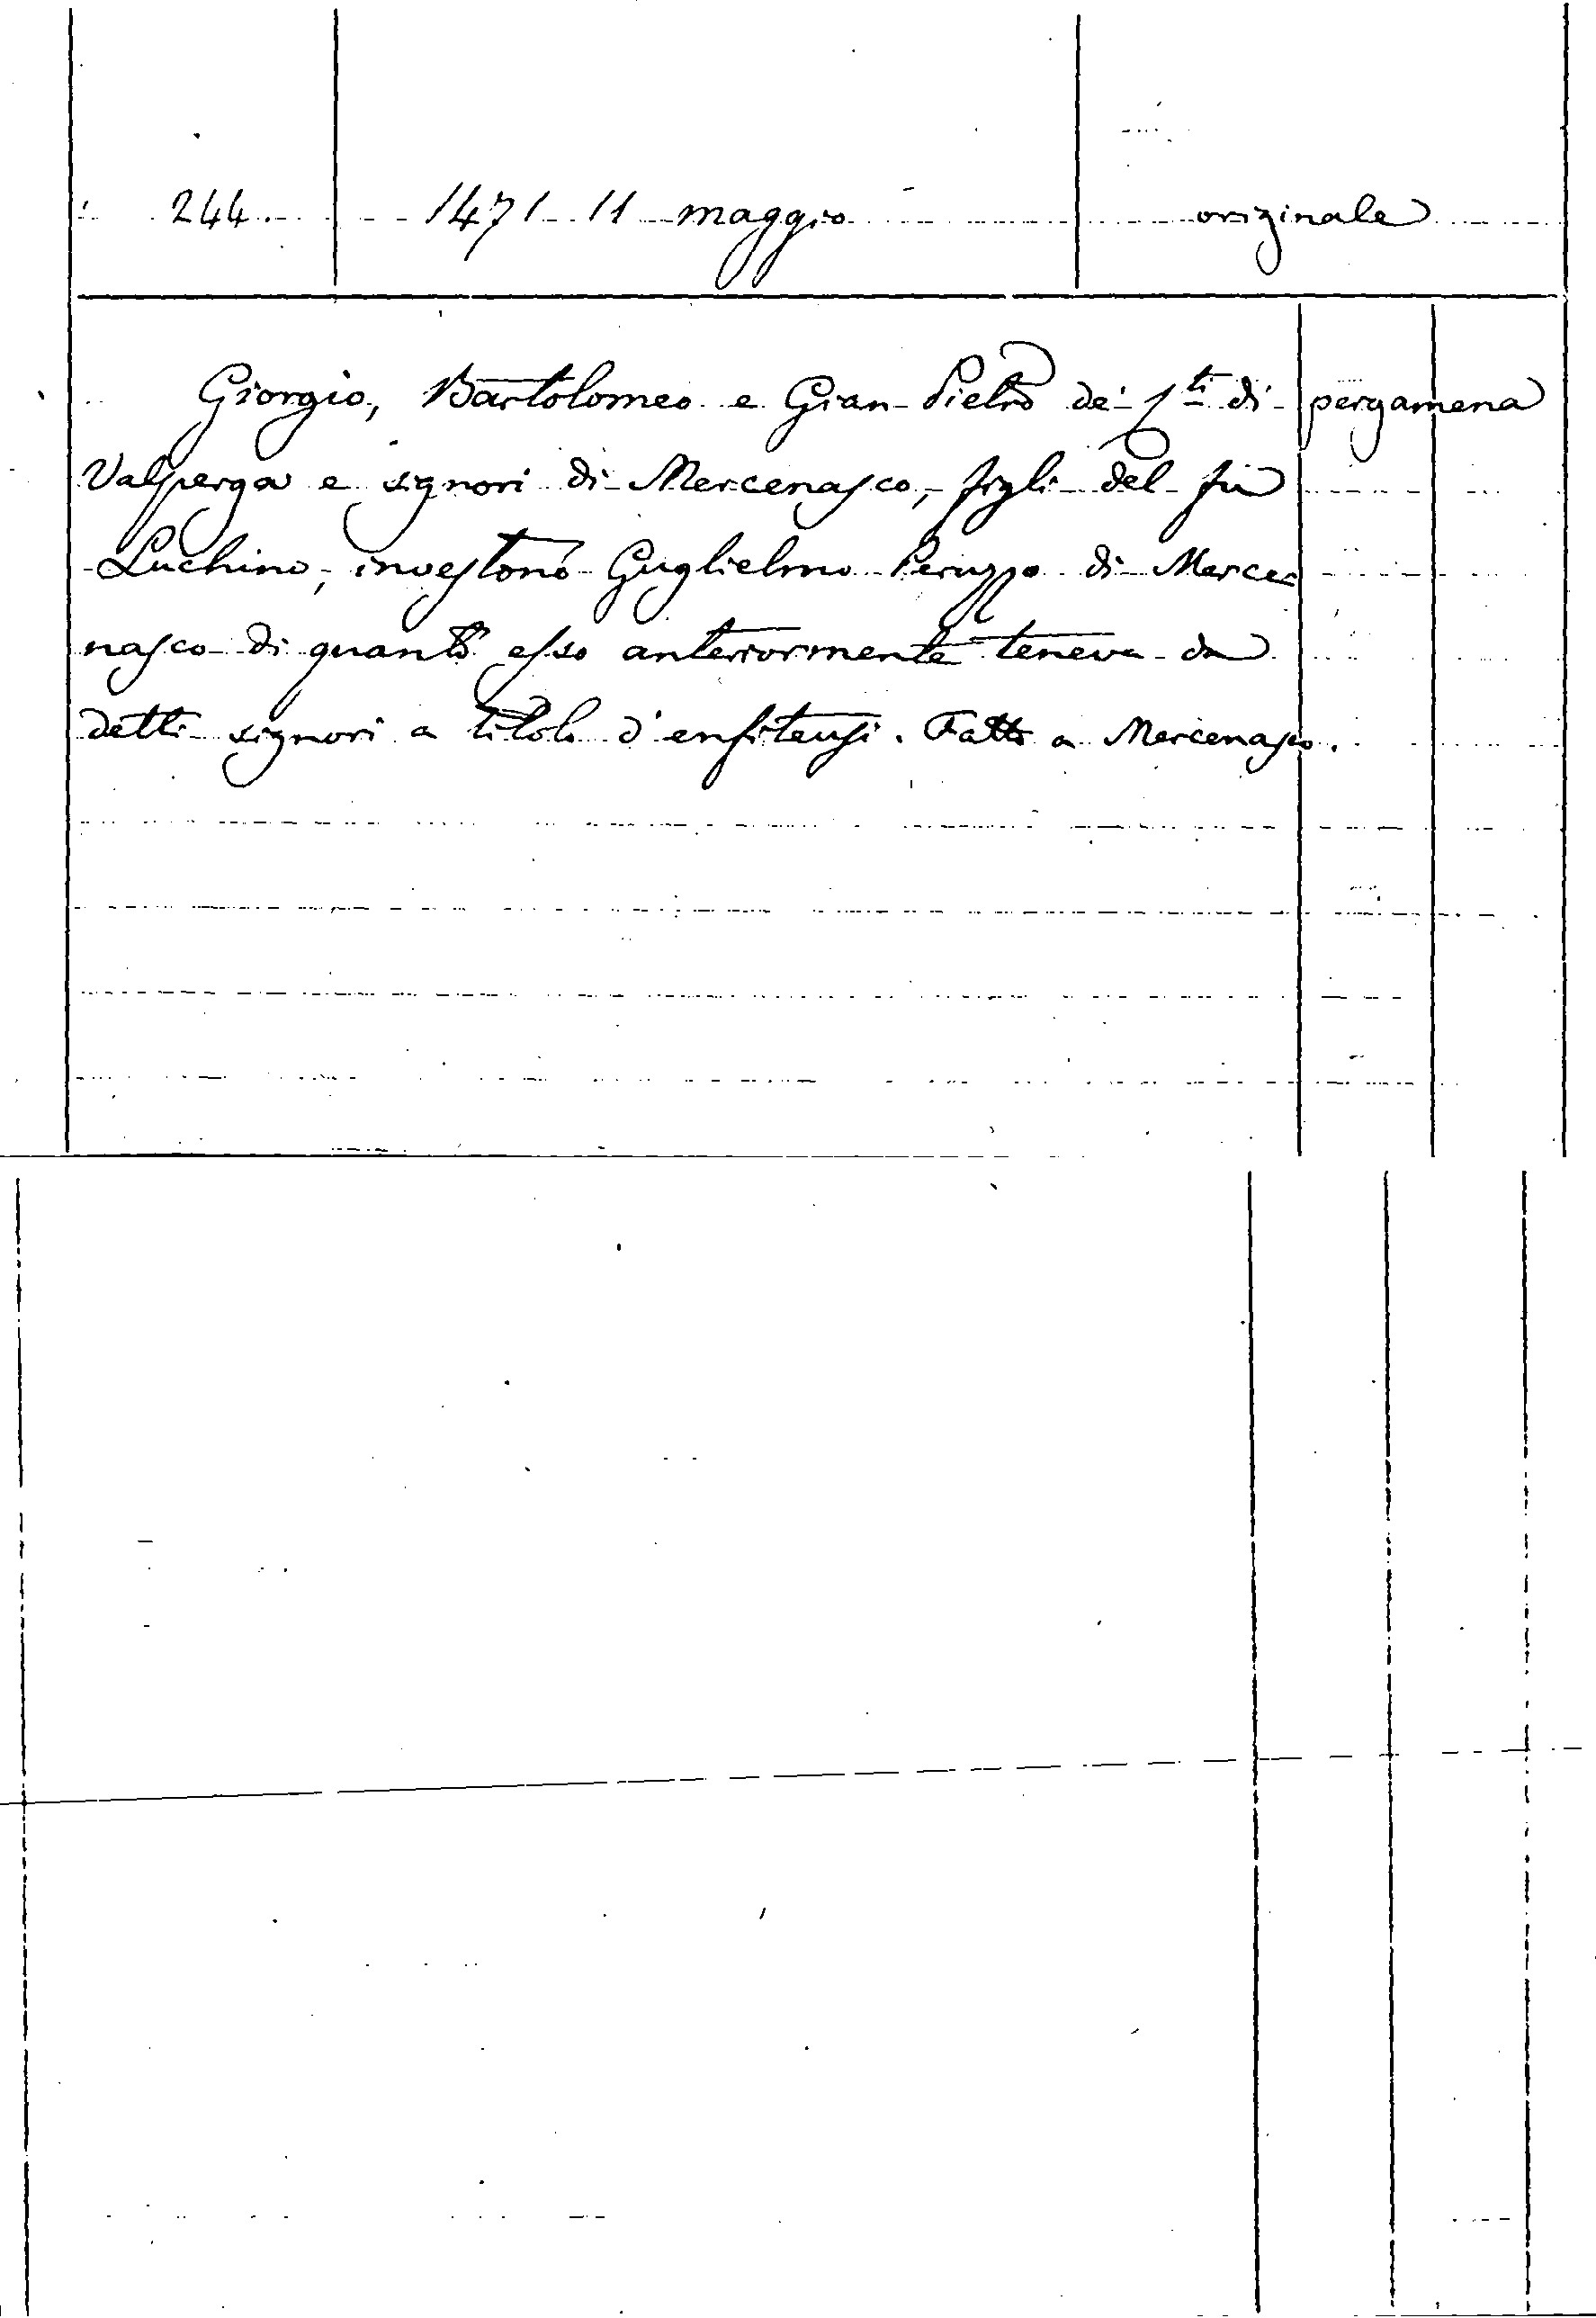 244. 1471 11 maggio originale
Giorgio, Bartolomeo e Gian Pietro de' cti di pergamena
Valperga e signori di Mercenasco, figli del fu
Luchino, investono Guglielmo Peruzzo di Merce=
nasco di quanto esso anteriormente teneva da
detti signori a titolo d'enfiteusi. Fatto a Mercenasco.